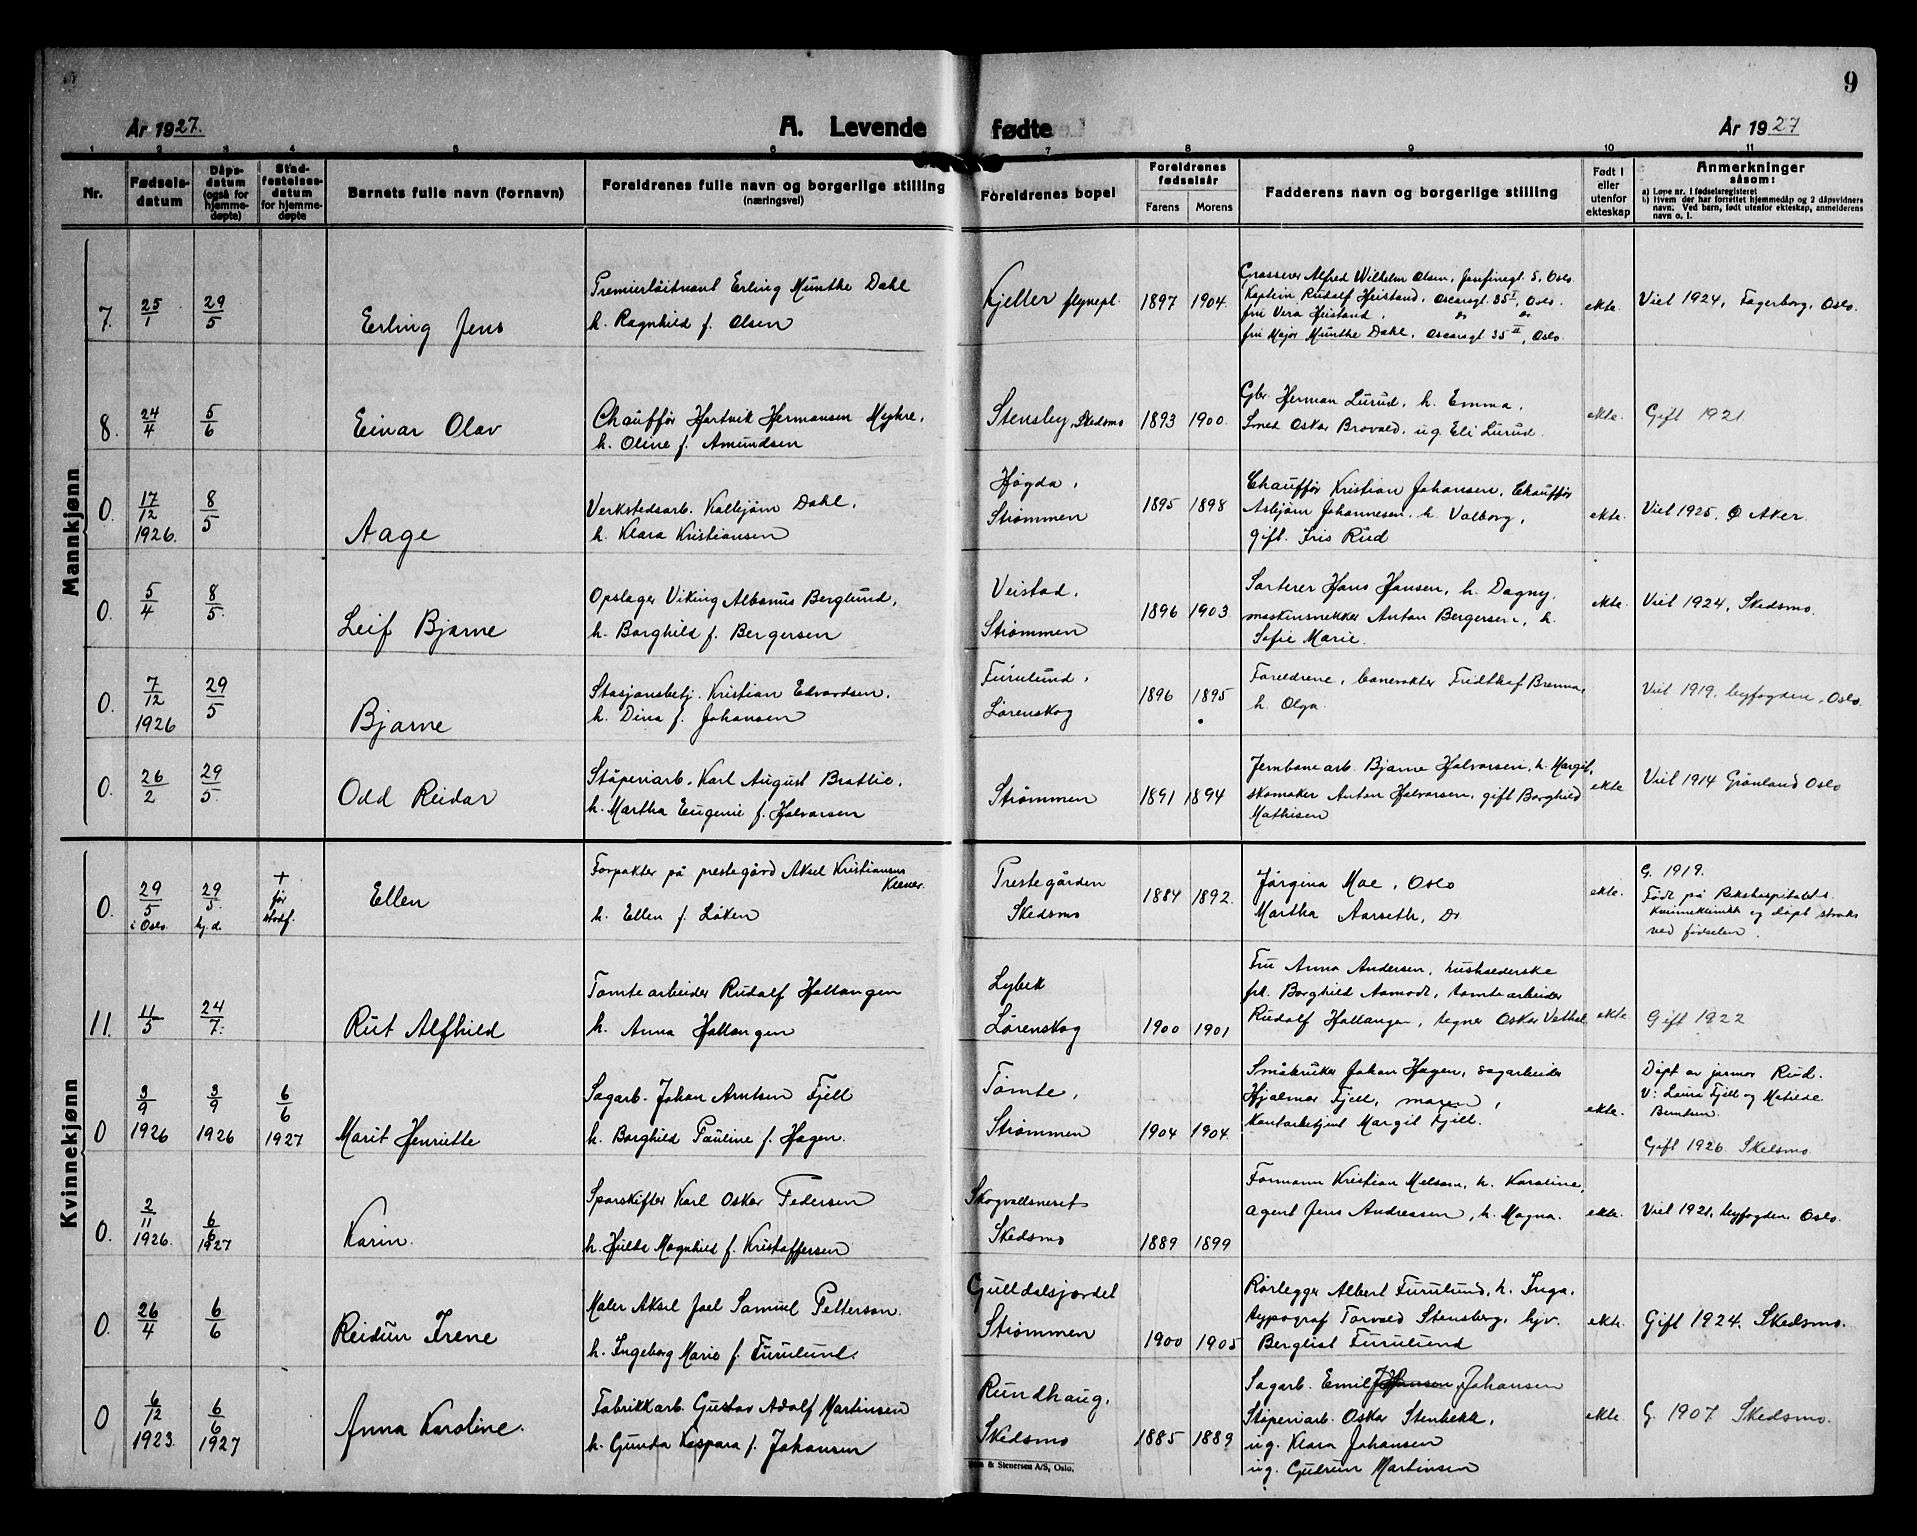 9
År 1927.
A. Levende fødte
År 1927
1 2 3 4 5 6 7 8 9 10 11
Nr.
Fødselsdatum
Dåpsdatum (også for hjemmedøpte)
Stadfestelsesdatum for hjemmedøpte
Barnets fulle navn (fornavn)
Foreldrenes fulle navn og borgerlige stilling
(næringsvei)
Foreldrenes bopel
Foreldrenes fødselsår
Farens Morens
Fadderens navn og borgerlige stilling
Født i eller utenfor ekteskap
Anmerkninger
såsom:
a) Løpe nr. i fødselsregisteret
b) Hvem der har forrettet hjemmedåp og 2 dåpsvidners
navn. Ved barn, født utenfor ekteskap, anmelderens
navn o. l.
Mannkjønn
7. 25/1 29/5 Erling Jens
Premierløitnant Erling Munthe Dahl
h. Ragnhild f. Olsen
Kjeller flyvepl. 1897 1904
Grosserer Alfred Wilhelm Olsen, Josefinegt. 5, Oslo
Kaptein Rudolf Heistand, Oscarsgt. 35 I, Oslo.
fru Vera Heistand, do do
fru Major Munthe Dahl, Oscarsgt. 35 II, Oslo.
ekte. Viet 1924, Fagerborg, Oslo.
8. 24/4 5/6 Einar Olav
Chauffør Hartvik Hermansen Myhre,
h. Oline f. Amundsen
Stensby, Skedsmo 1893 1900
Gbr. Herman Lurud, h. Emma,
Smed Oskar Brovold, ug. Eli Lurud.
ekte. Gift 1921
0. 17/12 1926. 8/5 Aage
Verkstedsarb. Kallejørn Dahl,
h. Klara Kristiansen
Høgda,
Strømmen 1895 1898
Chauffør Kristian Johansen, Chauffør
Asbjørn Johannesen, h. Valborg,
gift. Iris Rud
ekte. Viet 1925, Ø Aker.
0. 5/4 8/5 Leif Bjarne
Opslager Viking Albanus Berglund,
h. Borghild f. Bergersen
Veistad,
Strømmen 1896 1903
Sorterer Hans Hansen, h. Dagny,
maskinsnekker Anton Bergersen, h.
Sofie Marie.
ekte. Viet 1924, Skedsmo.
0. 7/12 1926 29/5 Bjarne
Stasjonsbetj. Kristian Edvardsen,
h. Dina f. Johansen
Furulund,
Lørenskog 1896 1895
Foreldrene, banevokter Fridtkof Brenna,
h. Olga.
Viet 1919, byfogden, Oslo.
0. 26/2 29/5. Odd Reidar
Støperiarb. Karl August Brattlie,
h. Martha Eugenie f. Halvorsen
Strømmen 1891 1894
Jernbanearb. Bjarne Halvorsen, h. Margit,
skomaker Anton Halvorsen, gift Borghild
Mathisen
ekte Viet 1914 Grønland Oslo
Kvinnekjønn
0. 29/5 i Oslo. 29/5. hj.d. + før stadf. Ellen
Forpakter på prestegård Aksel Kristiansen
h. Ellen f. Løken
Prestegården
Skedsmo 1884 1892.
Jørgina Moe, Oslo
Martha Aarseth, Do
ekte. G. 1919.
Født på Rikshospitalets
Kvinneklinikk og døpt straks
ved fødselen.
11. 11/5 24/7. Rut Alfhild
Tomtearbeider Rudolf Hallangen
h. Anna Hallangen
Lybek
Lørenskog 1900 1901
Fru Anna Andersen, husholderske
frk. Borghild Aamodt, tomtearbeider
Rudolf Hallangen, tegner Oskar Vethal
ekte. Gift 1922
0 3/9 1926 3/9 1926 6/6 1927 Marit Henriette
Sagarb. Johan Arntsen Fjell
h. Borghild Pauline f. Hagen.
Tømte,
Strømmen 1904 1904.
Småbruker Johan Hagen, sagarbeider
Hjalmar Fjell, maren,
Kontorbetjent Margit Fjell.
ekte. Døpt av jormor Rud.
V: Laura Fjell og Matilde
Berntsen.
Gift 1926. Skedsmo
0. 2/11 1926. 6/6 1927 Karin.
Sporskifter Karl Oskar Pedersen
h. Hulda Magnhild f. Kristoffersen
Skogvollsneret
Skedsmo 1889 1899
Formann Kristian Melsom, h. Karoline,
agent Jens Andressen, h. Magna.
ekte. Viet 1921, byfogden Oslo.
0. 26/4 6/6 Reidun Irene
Maler Aksel Joel Samuel Petterson.
h. Ingeborg Marie f. Furulund.
Gulldalsjordet
Strømmen 1900 1905
Rørlegger Albert Furulund, h. Inga,
typograf Torvald Stensberg, hjv.
Bergliot Furulund
ekte. Gift 1924. Skedsmo.
0 6/12 1923. 6/6 1927 Anna Karoline.
Fabrikkarb. Gustav Adolf Martinsen
h. Gunda Kaspara f. Johansen
Rundhaug,
Skedsmo 1885 1889
Sagarb. Emil Johansen
Støperiarb. Oskar Stenbekk,
ug. Klara Johansen
ug. Gudrun Martinsen
ekte. G. 1907 Skedsmo.
& Stenersen A/S, Oslo.